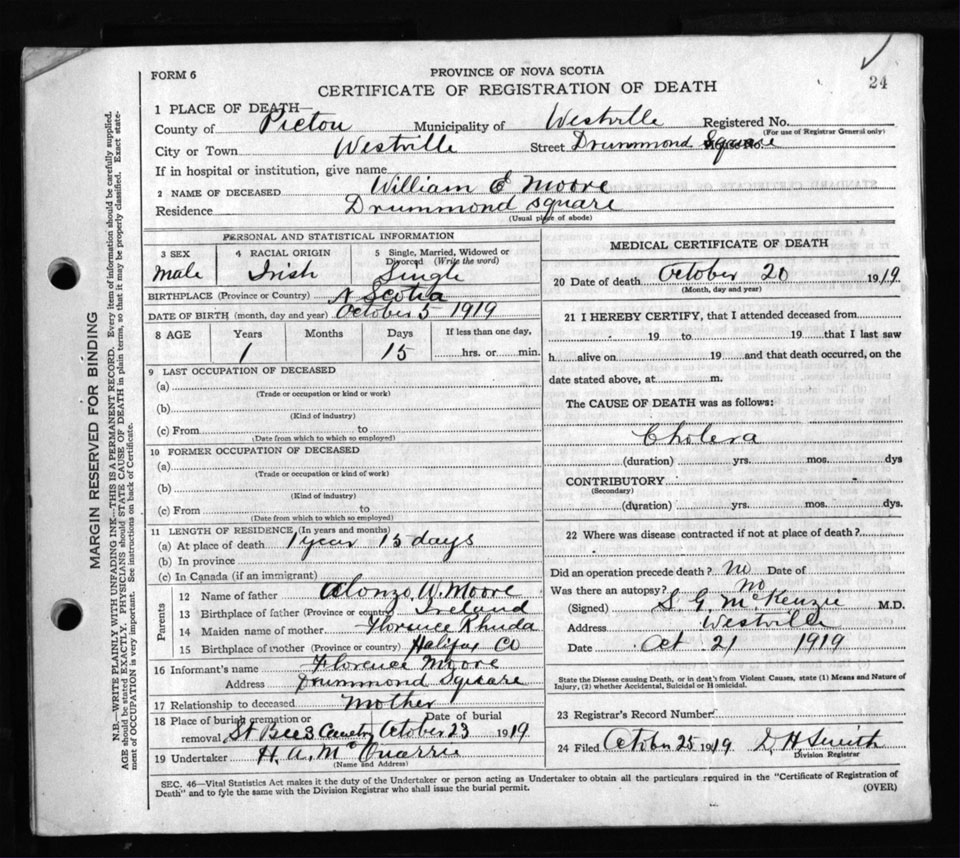 24
FORM 6
PROVINCE OF NOVA SCOTIA
CERTIFICATE OF REGISTRATION OF DEATH
1 PLACE OF DEATH—
County of Pictou Municipality of Westville Registered No.
(For use of Registrar General only)
City or Town Westville Street Drummond Square
If in hospital or institution, give name
2 NAME OF DECEASED William E Moore
Residence Drummond Square
(Usual place of abode)
PERSONAL AND STATISTICAL INFORMATION
3 SEX 4 RACIAL ORIGIN 5 Single, Married, Widowed or Divorced (Write the word)
Male Irish Single
BIRTHPLACE (Province or Country) N Scotia
DATE OF BIRTH (month, day and year) October 5 1919
8 AGE Years Months Days If less than one day,
1 15 hrs. or min.
9 LAST OCCUPATION OF DECEASED
(a)
(Trade or occupation or kind or work)
(b)
(Kind of industry)
(c) From to
(Date from which to which so employed)
10 FORMER OCCUPATION OF DECEASED
(a)
(Trade or occupation or kind of work)
(b)
(Kind of industry)
(c) From to
(Date from which to which so employed)
11 LENGTH OF RESIDENCE (In years and months)
(a) At place of death 1 year 15 days
(b) In province
(c) In Canada (if an immigrant)
Parents
12 Name of father Alonzo W. Moore
13 Birthplace of father (Province or country) Ireland
14 Maiden name of mother Florence Rhuda
15 Birthplace of mother (Province or country) Halifax Co
16 Informant's name Florence Moore
Address Drummond Square
17 Relationship to deceased Mother
18 Place of burial cremation or removal St Bees Cemetry Date of burial October 23 1919
19 Undertaker H. A. McQuarrie
(Name and Address)
MEDICAL CERTIFICATE OF DEATH
20 Date of death October 20 1919
(Month, day and year)
21 I HEREBY CERTIFY, that I attended deceased from
19 to 19 that I last saw
h alive on 19 and that death occurred, on the
date stated above, at m.
The CAUSE OF DEATH was as follows:
Cholera
(duration) yrs. mos. dys
CONTRIBUTORY
(Secondary)
(duration) yrs. mos. dys.
22 Where was disease contracted if not at place of death?
Did an operation precede death? no Date of
Was there an autopsy? No
(Signed) S. G. McKenzie M.D.
Address Westville
Date Oct 21 1919
State the Disease causing Death, or in deat's from Violent Causes, state (1) Means and Nature of
Injury, (2) whether Accidental, Suicidal or Homicidal.
23 Registrar's Record Number
24 Filed October 25 1919 D. H. Smith
Division Registrar
SEC. 46—Vital Statistics Act makes it the duty of the Undertaker or person acting as Undertaker to obtain all the particulars required in the "Certificate of Registration of
Death" and to fyle the same with the Division Registrar who shall issue the burial permit.
(OVER)
MARGIN RESERVED FOR BINDING
N.B.—WRITE PLAINLY WITH UNFADING INK—THIS IS A PERMANENT RECORD. Every item of information should be carefully supplied.
AGE should be stated EXACTLY. PHYSICIANS should STATE CAUSE OF DEATH in plain terms, so that it may be properly classified. Exact state-
ment of OCCUPATION is very important. See instructions on back of Certificate.